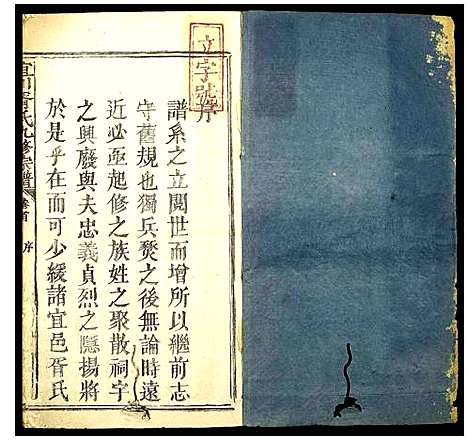 文字號
序
譜系之立閱世而增所以繼前志
守舊規也獨兵燹之後無論時遠
近必亟起修之族姓之聚散祠宇
之興廢與夫忠義貞烈之隱揚將
於是乎在而可少緩諸宜邑胥氏
胥氏九修宗譜
卷首
序